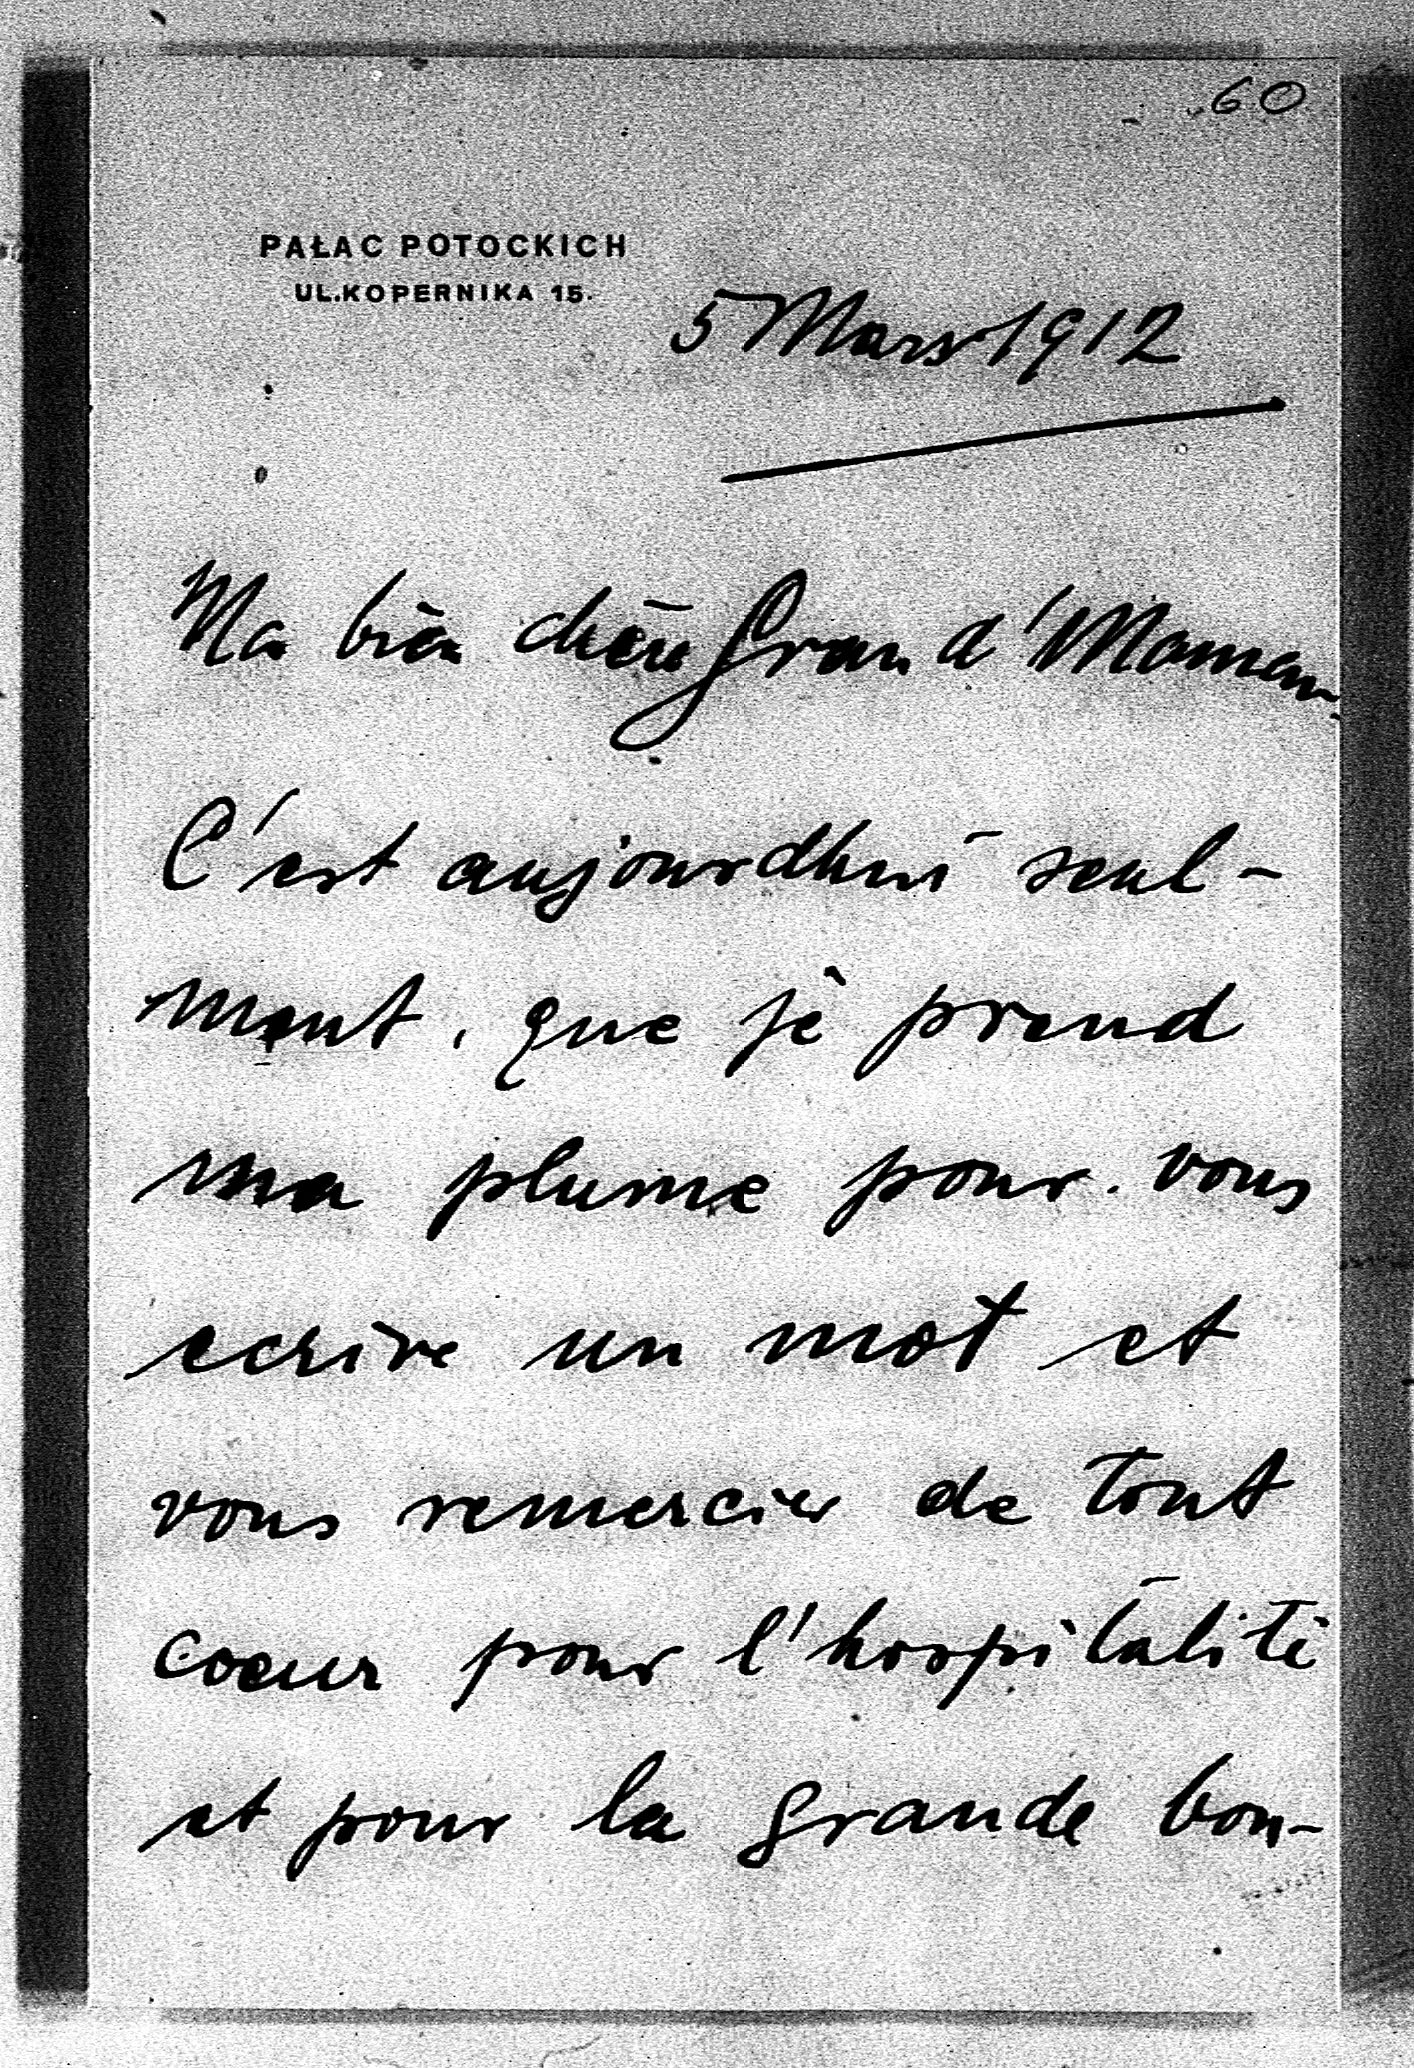 60
PAŁAC POTOCKICH
UL.KOPERNIKA 15.
5 Mars 1912
Ma bien chère Grand'Maman.
C'est aujourdhui seul-
ment, que je prend
ma plume pour vous
ecrire un mot et
vous remercier de tout
coeur pour l'hospitalité
et pour la grande bon-